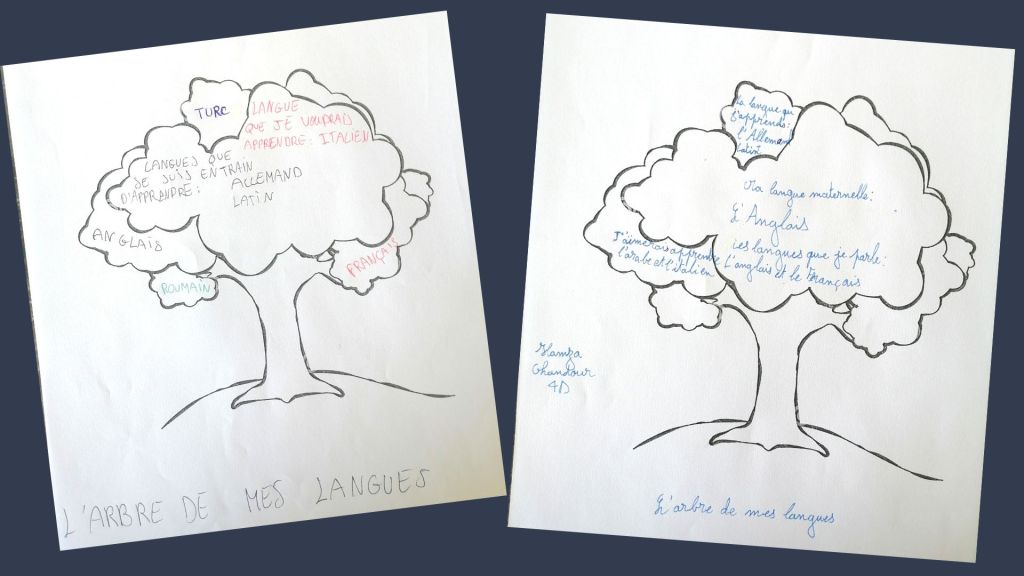 TURC
LANGUE
QUE JE VOUDRAIS
APPRENDRE : ITALIEN
LANGUES QUE
JE SUIS EN TRAIN
D'APPRENDRE :
ALLEMAND
LATIN
ANGLAIS
ROUMAIN
FRANÇAIS
L'ARBRE DE MES LANGUES
La langue que
j'apprends:
l'Allemand
latin
Ma langue maternelle:
L'Anglais
Les langues que je parle:
L'anglais et le Français
J'aimerais apprendre
l'arabe et l'italien
Hamza
Ghandour
4D
L'arbre de mes langues